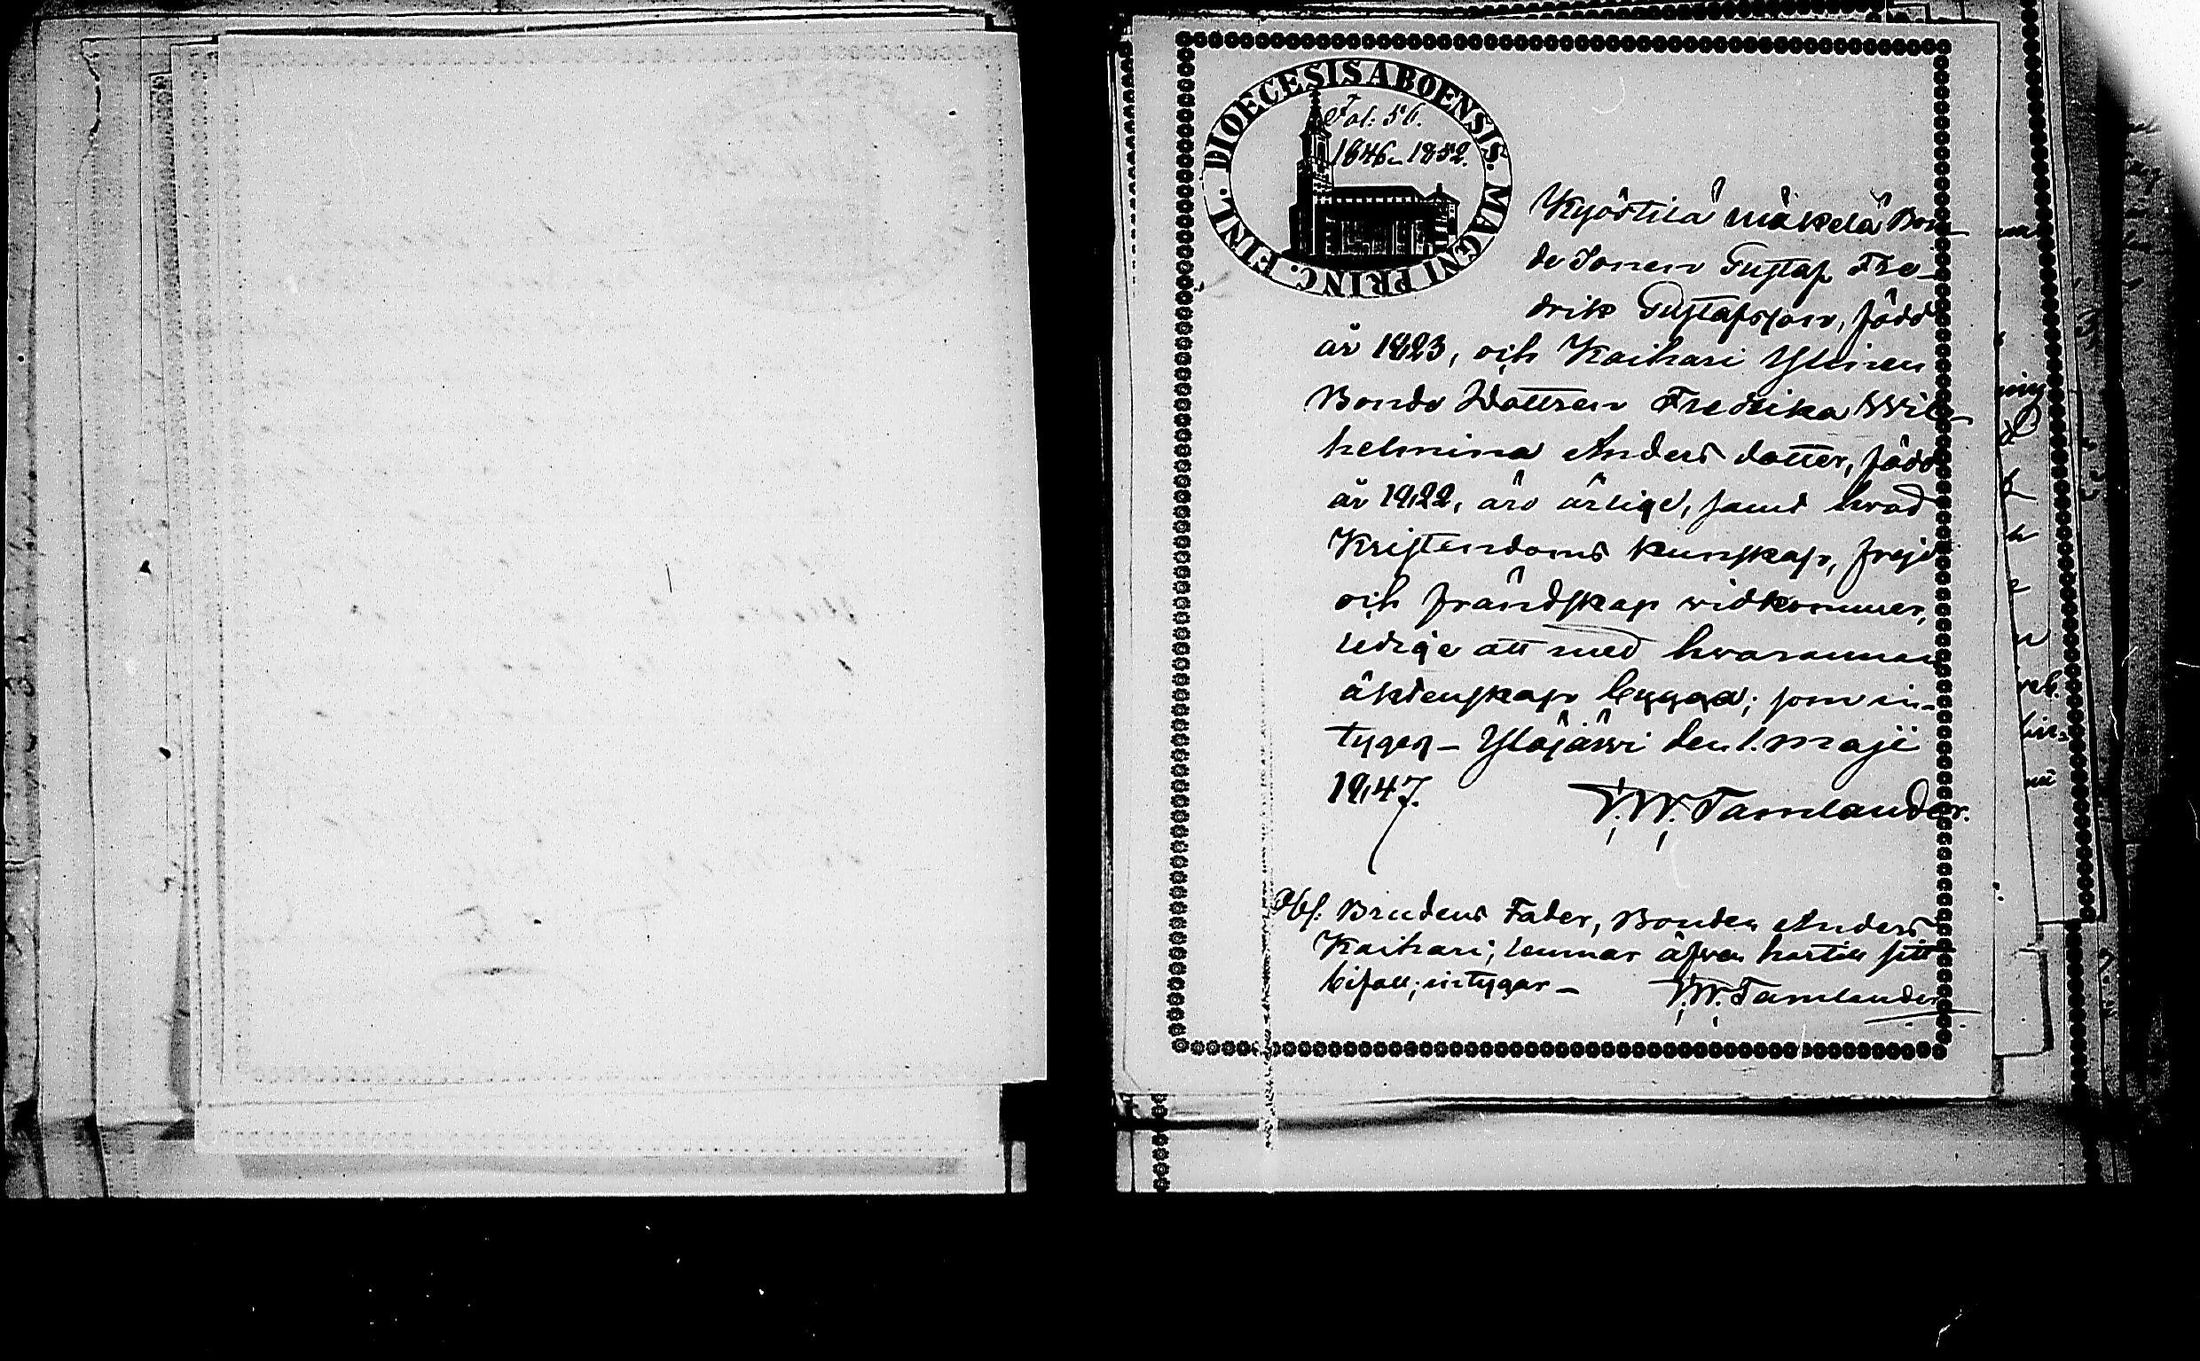 FINL. DIOECESIS ABOENSIS. MAGNI PRINC.
Fol: 56.
1846-1852.
Kyöstilä Mäkelä Bon-
de Sonen Gustaf Fre-
drik Gustafsson, född
år 1823, och Kaihari Ylinen
Bonde Dottren Fredrika Wil-
helmina Anders dotter, född
år 1822, äro ärlige, samt hvad
Kristendoms kunskap, frejd
och frändskap widkommer,
ledige att med hvarannan
äktenskap bygga; som in-
tygas - Ylöjärwi den 1. Maji
1847.
W. Tamlander.
Obs: Brudens Fader, Bonden Anders
Kaihari; lemnar äfven härtill sitt
bifall; intygar -
W. Tamlander